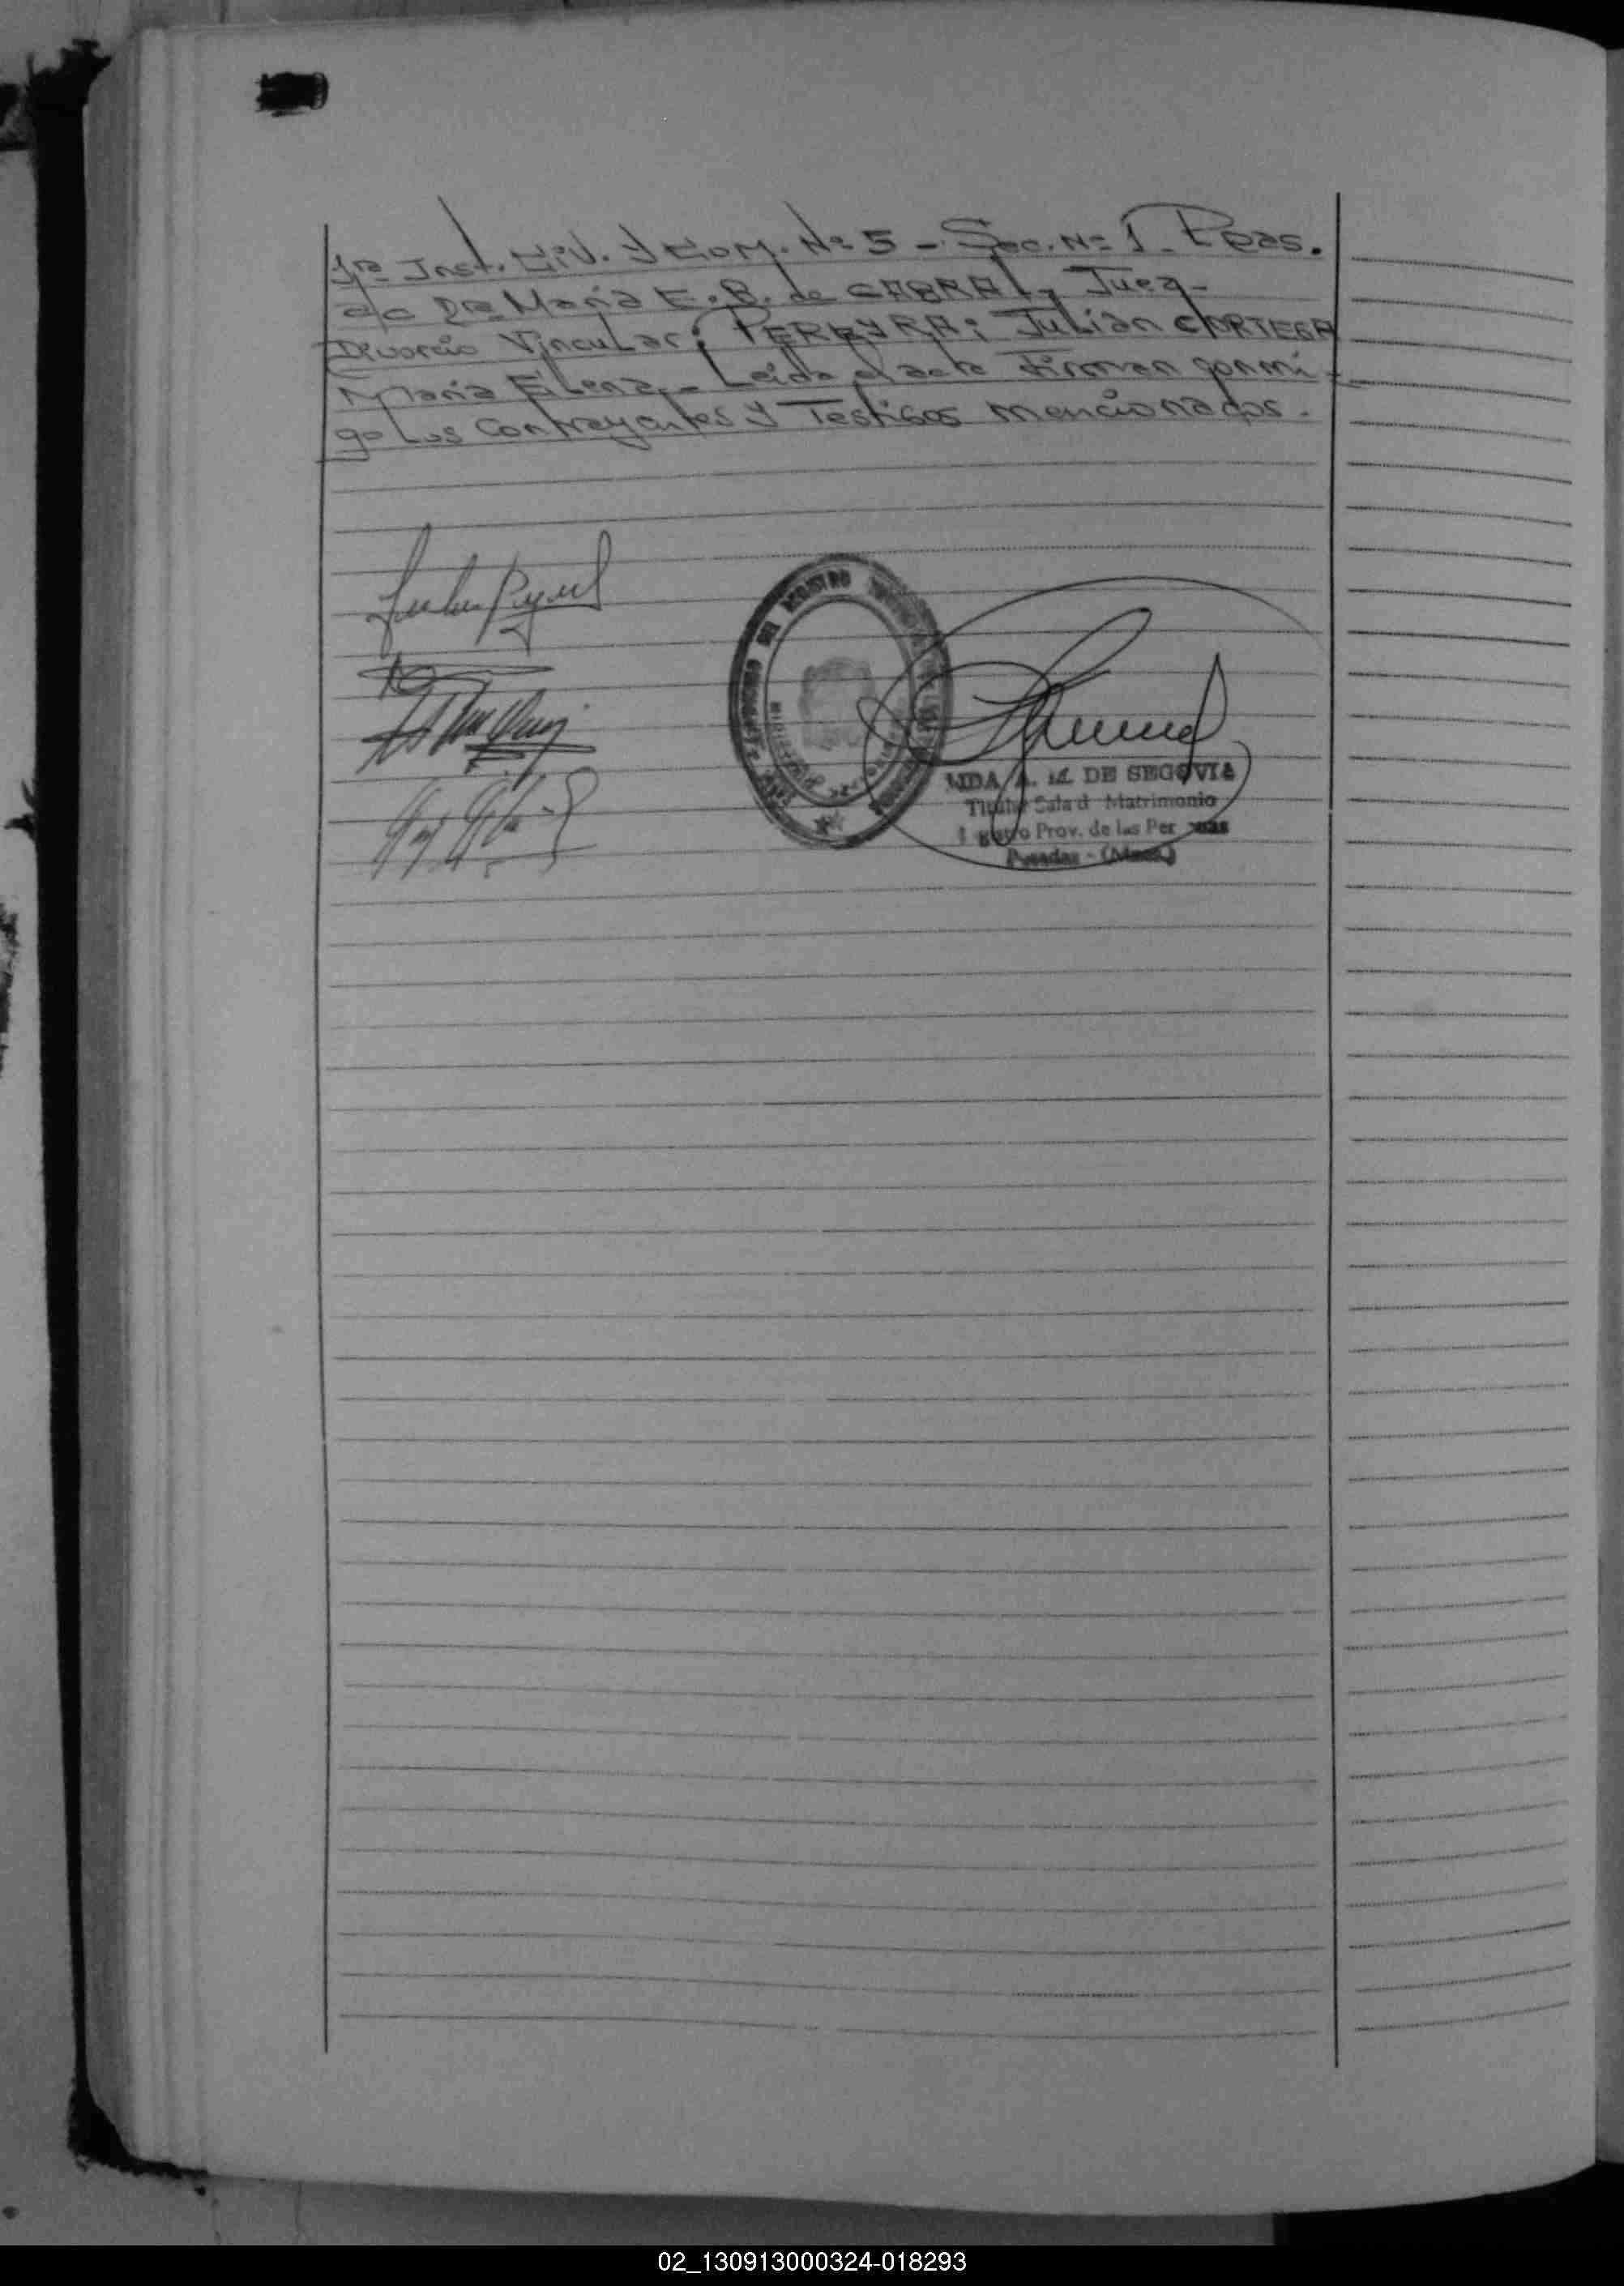 1ra Inst. Civ. y Com. Nº 5 - Sec. Nº 1 - Pdas.
a/c Dra. María E. B. de CABRAL, Juez -
Divorcio Vincular; PEREYRA; Julián C/ORTEGA
María Elena, - Leída el acta Firman conmi-
go Los Contrayentes y Testigos mencionados.
DEL REGISTRO
LIDA A. M. DE SEGOVIA
Titular Sala d Matrimonio
Prov. de las Per
Posadas - (Mnes)
02_130913000324-018293